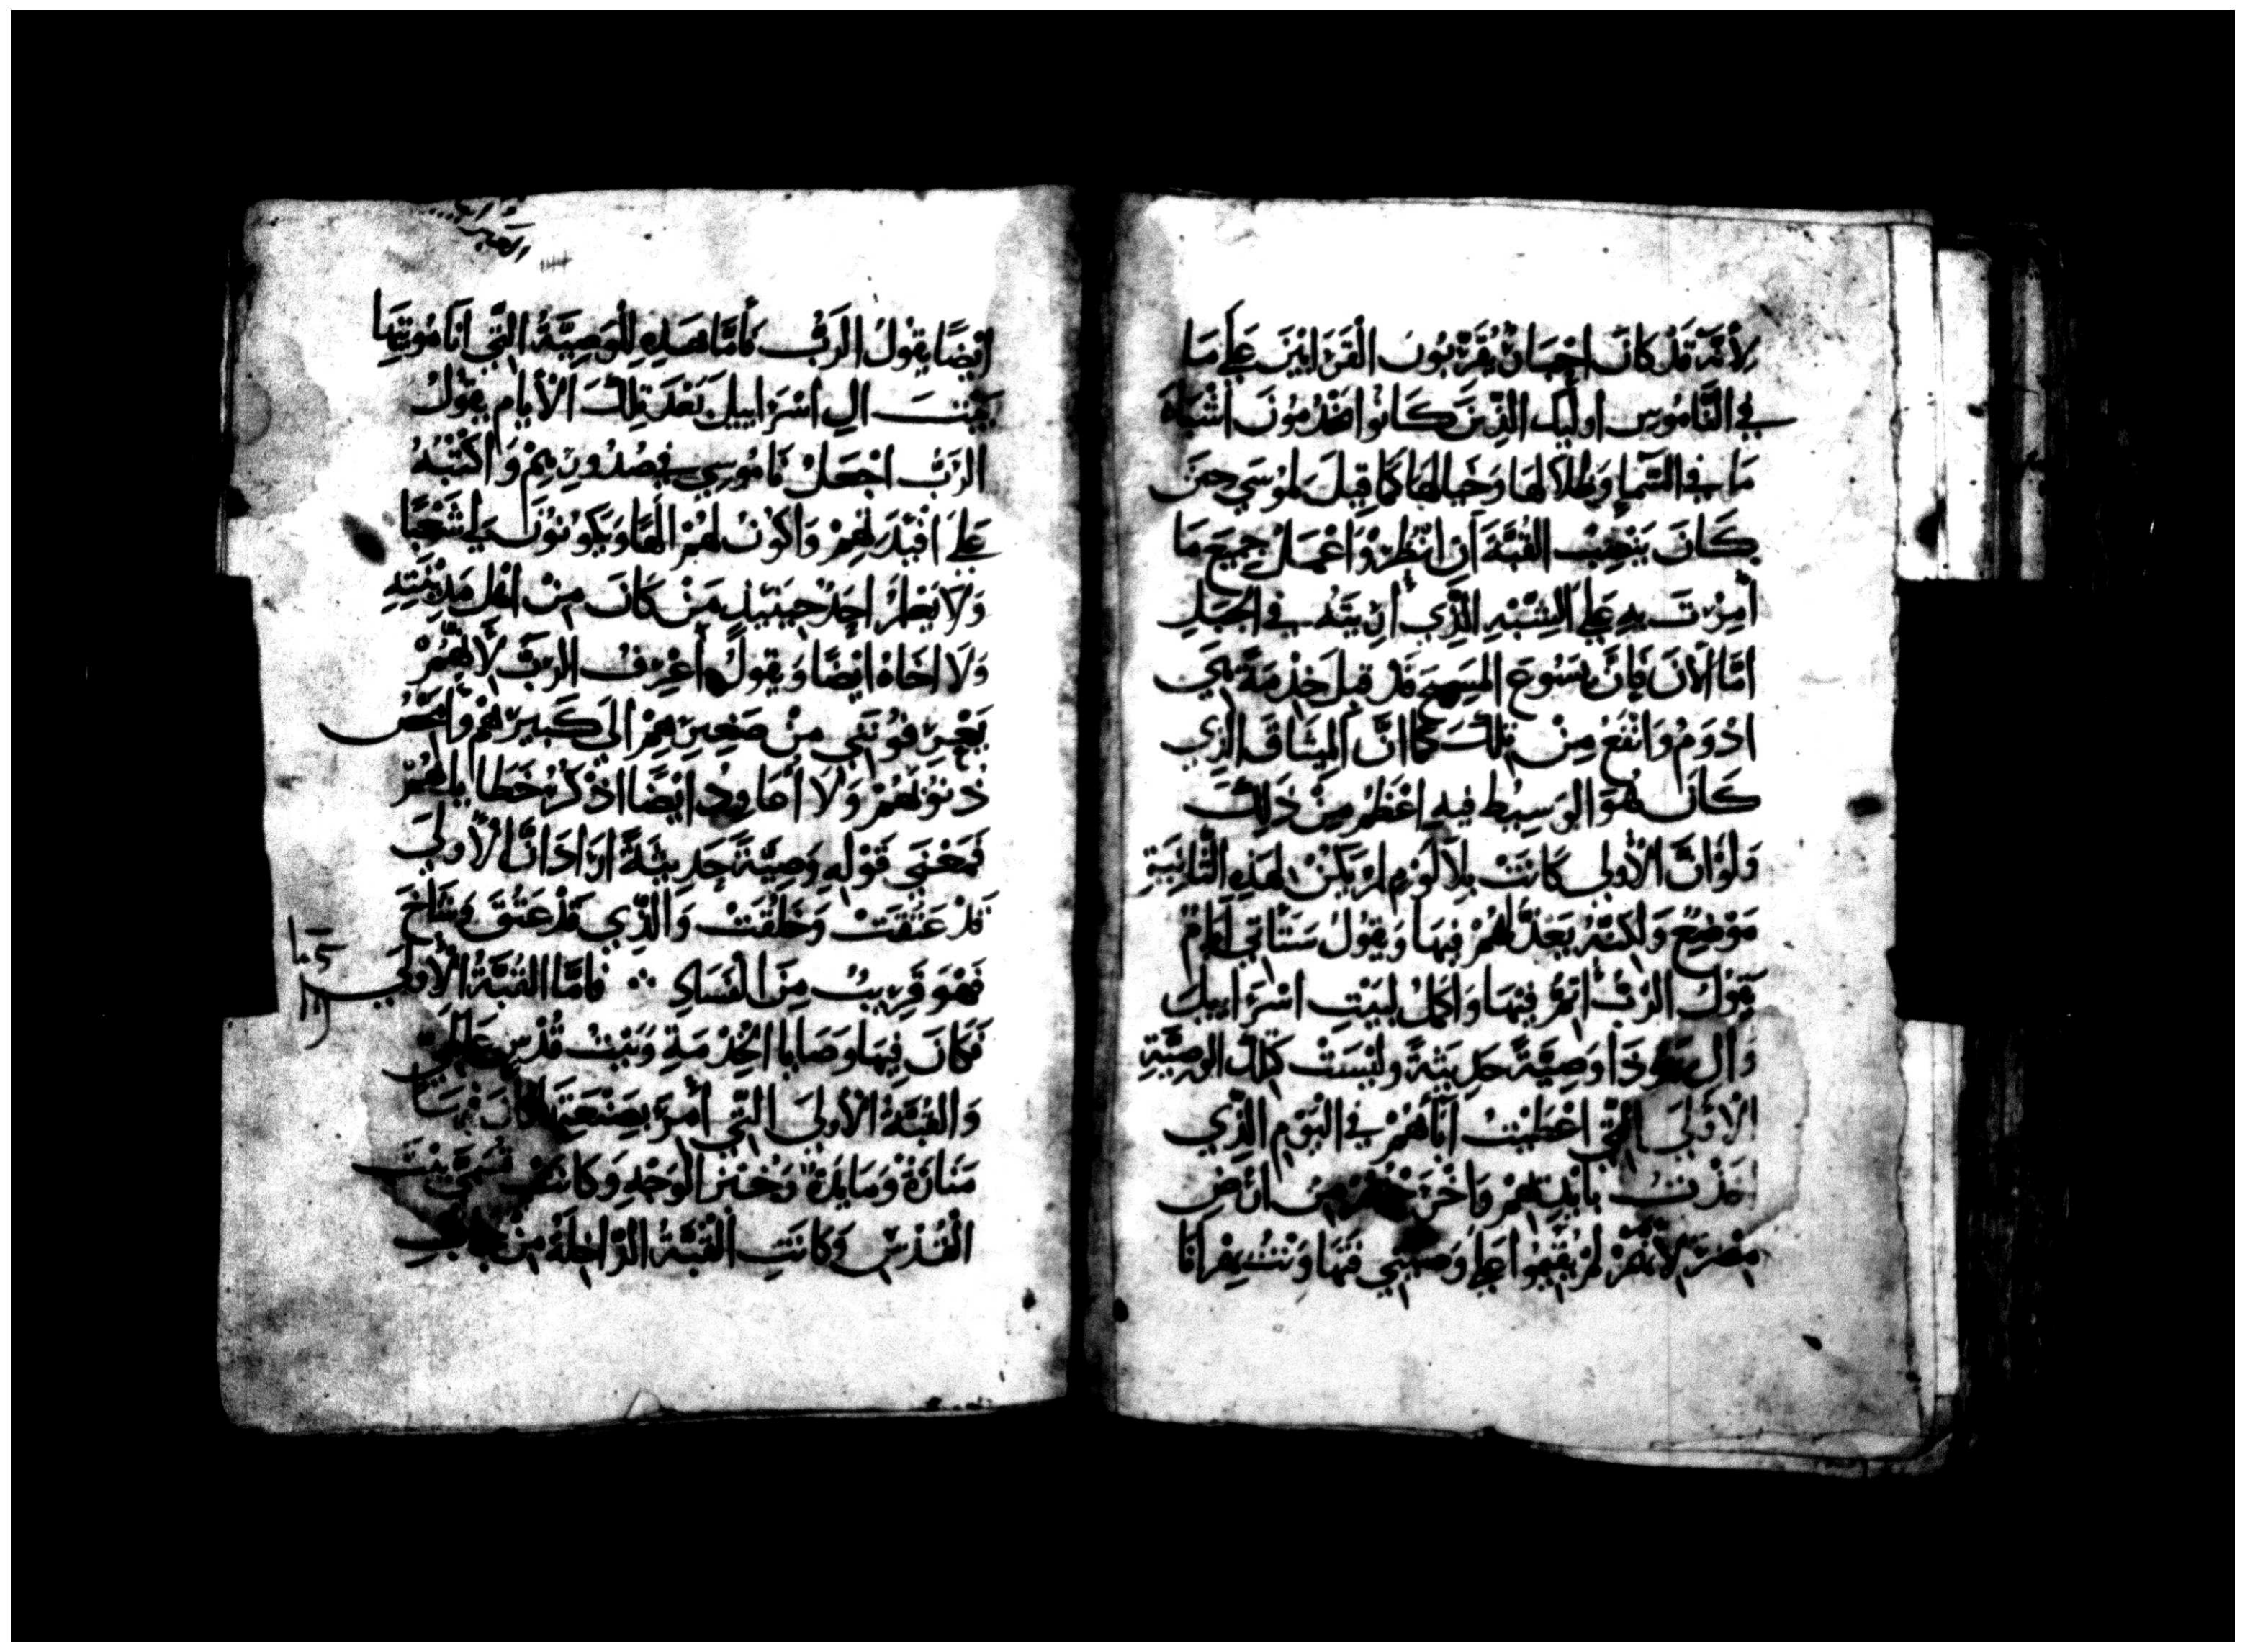 لِأَنَّهُ قَدْ كَانَ احْبَارٌ يُقَرِّبُونَ الْقَرَابِينَ عَلَى مَا
فِي النَّامُوسِ اوليك الَّذِينَ كَانُوا يَخْدُمُونَ اشْبَاهَ
مَا فِي السَّمَاءِ وَظِلَالَهَا وَخَيَالَهَا كَمَا قِيلَ لِمُوسَى حِينَ
كَانَ يَنْصِبُ الْقُبَّةَ أَنِ انْظُرْ وَاعْمَلْ جَمِيعَ مَا
أُمِرْتَ بِهِ عَلَى الشِّبْهِ الَّذِي أُرِيتَهُ فِي الْجَبَلِ
امَّا الْآنَ فَإِنَّ يَسُوعَ الْمَسِيحَ قَدْ قَبِلَ خِدْمَةً هِيَ
ادْوَمُ وَانْفَعُ مِنْ تِلْكَ كَمَا انَّ الْمِيثَاقَ الَّذِي
كَانَ هُوَ الْوَسِيطَ فِيهِ اعْظَمُ مِنْ ذَلِكَ
وَلَوْ انَّ الْأُولَى كَانَتْ بِلَا لَوْمٍ لَمْ يَكُنْ لِهَذِهِ الثَّانِيَةِ
مَوْضِعٌ وَلَكِنَّهُ يَعْذُلُهُمْ فِيهَا وَيَقُولُ سَتَأْتِي أَيَّامٌ
يَقُولُ الرَّبُّ أُتِمُّ فِيهَا وَاكْمِلُ لِبَيْتِ اسْرَاييلَ
وَآلِ يَهُوذَا وَصِيَّةً حَدِيثَةً وَلَيْسَتْ كَتِلْكَ الْوَصِيَّةِ
الْأُولَى الَّتِي اعْطَيْتُ آبَاءَهُمْ فِي الْيَوْمِ الَّذِي
اخَذْتُ بِأَيْدِيهِمْ وَاخْرَجْتُهُمْ مِنْ ارْضِ
مِصْرَ لِأَنَّهُمْ لَمْ يُقِيمُوا عَلَى وَصِيَّتِي فَتَهَاوَنْتُ بِهِمْ انَا
ايْضًا يَقُولُ الرَّبُّ فَأَمَّا هَذِهِ الْوَصِيَّةُ الَّتِي انَا مُوتِيهَا
بَيْتَ الِ اسْرَاييلَ بَعْدَ تِلْكَ الْأَيَّامِ يَقُولُ
الرَّبُّ اجْعَلُ نَامُوسِي فِي صُدُورِهِمْ وَاكْتُبُهُ
عَلَى افْيِدَتِهِمْ وَاكُونُ لَهُمْ الَهًا وَيَكُونُونَ لِي شَعْبًا
وَلَا يُعَلِّمُ احَدٌ حِينَيِذٍ مَنْ كَانَ مِنْ اهْلِ مَدِينَتِهِ
وَلَا اخَاهُ ايْضًا وَيَقُولُ أَعْرِفُ الرَّبَّ لِأَنَّهُمْ
يَعْرِفُونَنِي مِنْ صَغِيرِهِمْ الَى كَبِيرِهِمْ وَأُمَحِّصُ
ذُنُوبَهُمْ وَلَا أُعَاوِدُ ايْضًا اذْكُرُ خَطَايَاهُمْ
فَمَعْنَى قَوْلِهِ وَصِيَّةً حَدِيثَةً ارَادَ انَّ الْأُولَى
قَدْ عَتُقَتْ وَخَلُقَتْ وَالَّذِي قَدْ عَتُقَ وَشَاخَ
فَهُوَ قَرِيبٌ مِنَ الْفَسَادِ ۞ فَأَمَّا الْقُبَّةُ الْأُولَى
فَكَانَ فِيهَا وَصَايَا الْخِدْمَةِ وَبَيْتُ قُدْسٍ عَالَمِيٌّ
وَالْقُبَّةُ الْأُولَى الَّتِي أُمِرَ بِصَنْعَتِهَا كَانَ فِيهَا
مَنَارَةٌ وَمَايِدَةٌ وَخُبْزُ الْوَجْهِ وَكَانَتْ تُسَمَّى بَيْتَ
الْقُدْسِ وَكَانَتِ الْقُبَّةُ الدَّاخِلَةُ مِنْ جَانِبِ